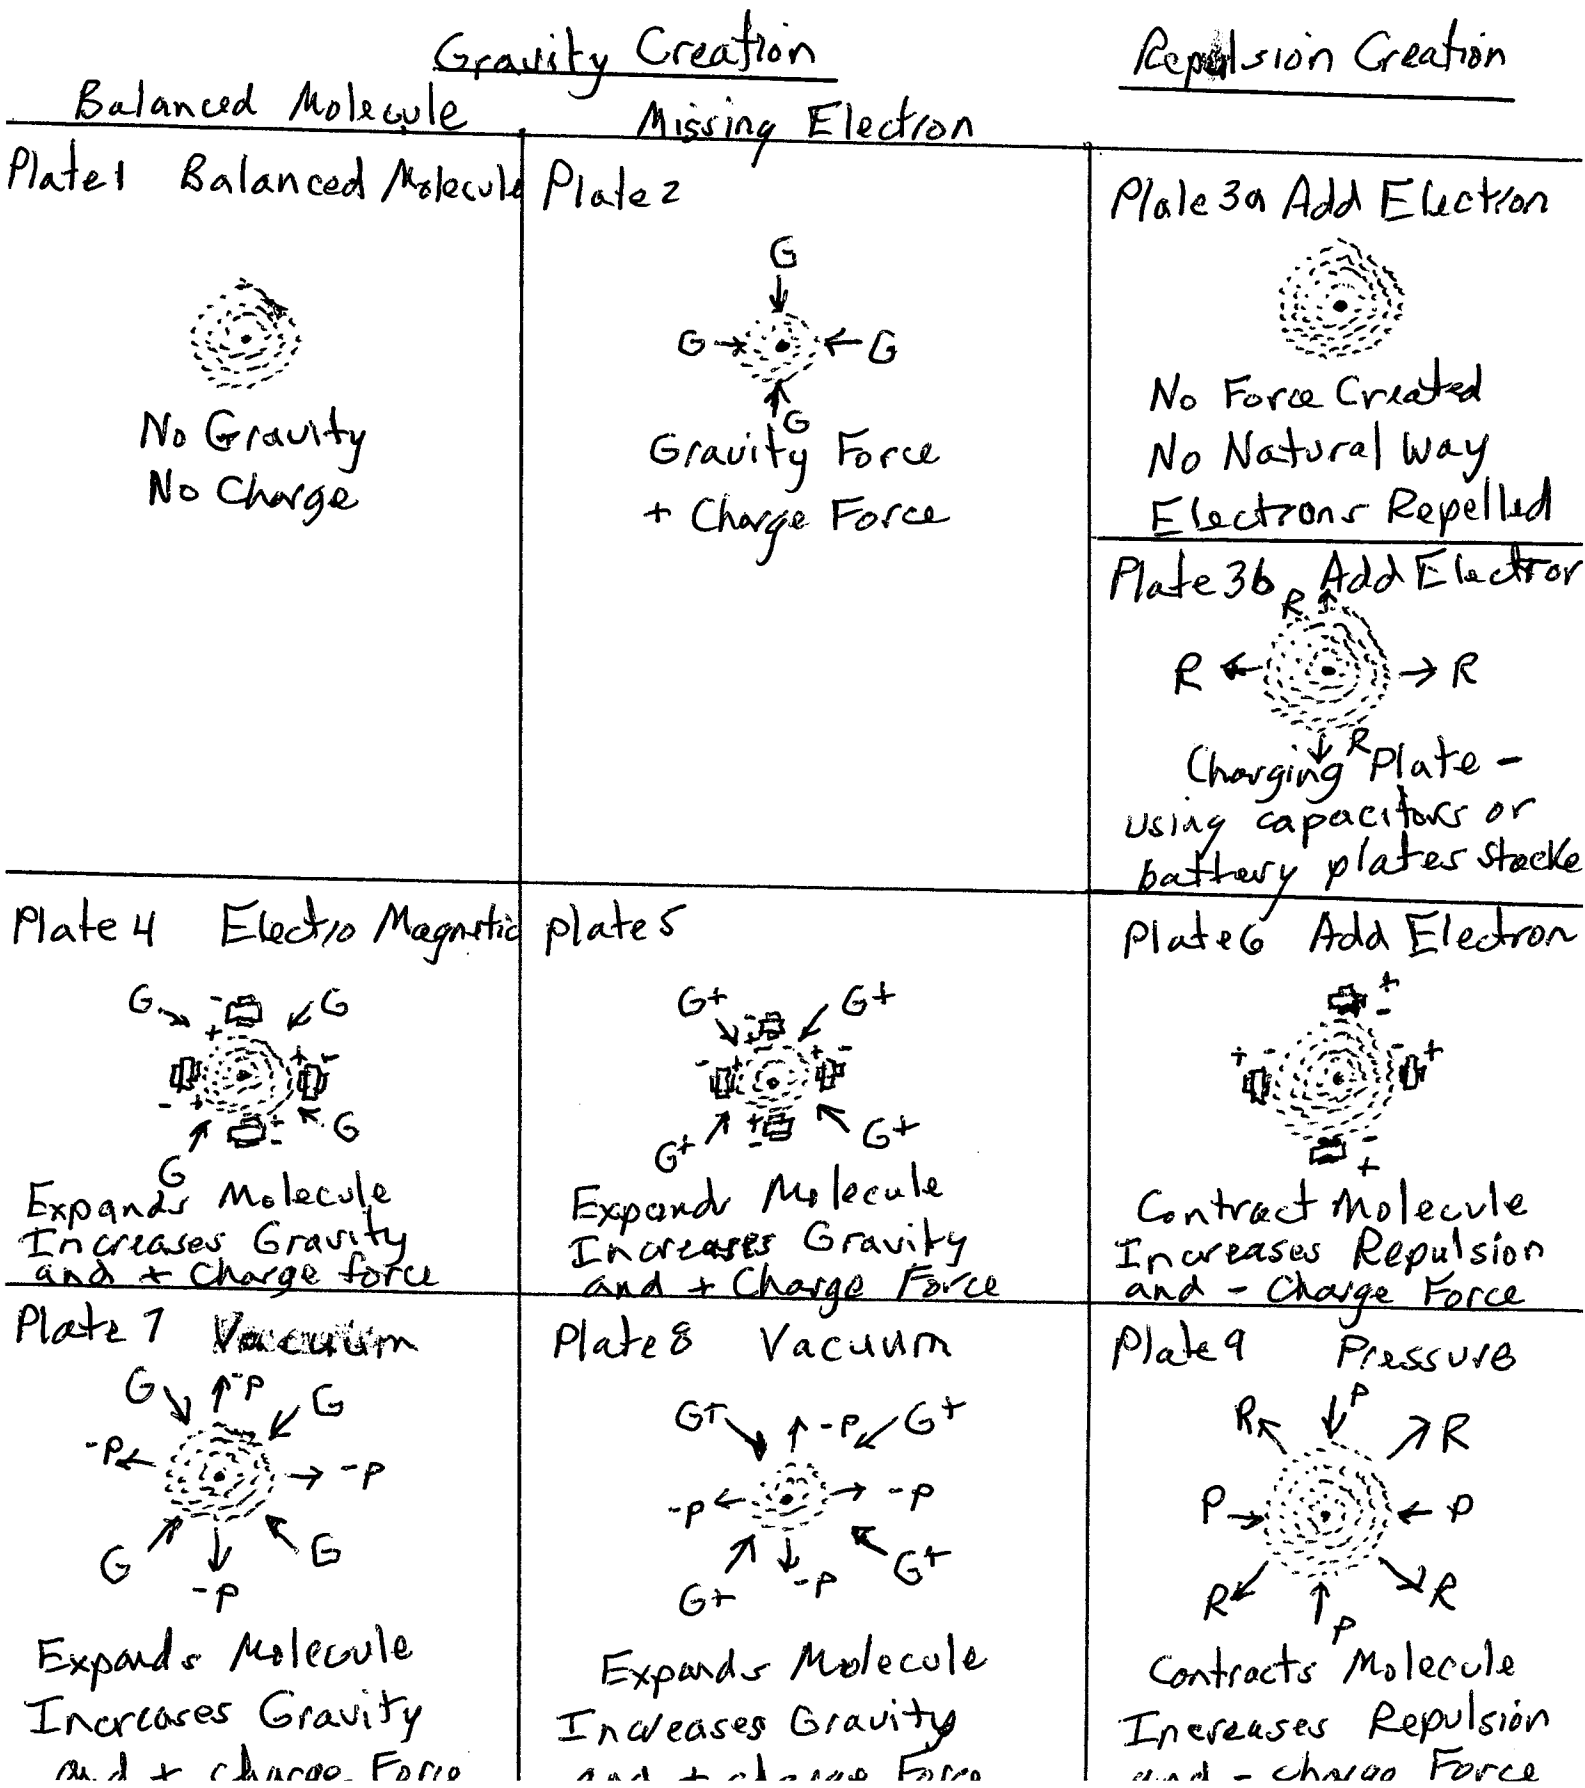 Gravity Creation
Repulsion Creation
Balanced Molecule
Missing Electron
Plate 1 Balanced Molecule
No Gravity
No Charge
Plate 2
G
G
G
G
Gravity Force
+ Charge Force
Plate 3a Add Electron
No Force Created
No Natural Way
Electrons Repelled
Plate 3b Add Electror
R
R
R
R
Charging Plate -
using capacitors or
battery plates stacke
Plate 4 Electro Magnetic
G - G
+
+ -
- +
+ -
G
G
Expands Molecule
Increases Gravity
and + Charge force
plate 5
G+ G+
- +
- + + -
+
-
G+ G+
Expands Molecule
Increases Gravity
and + Charge Force
Plate 6 Add Electron
+
-
+ - - +
-
+
Contract Molecule
Increases Repulsion
and - Charge Force
Plate 7 Vacuum
G -P G
-P -P
G G
-P
Expands Molecule
Increases Gravity
and + charge Force
Plate 8 Vacuum
G+ -P G+
-P -P
G+ -P G+
Expands Molecule
Increases Gravity
and + charge Force
Plate 9 Pressure
R P R
P P
R P R
Contracts Molecule
Increases Repulsion
and - charge Force